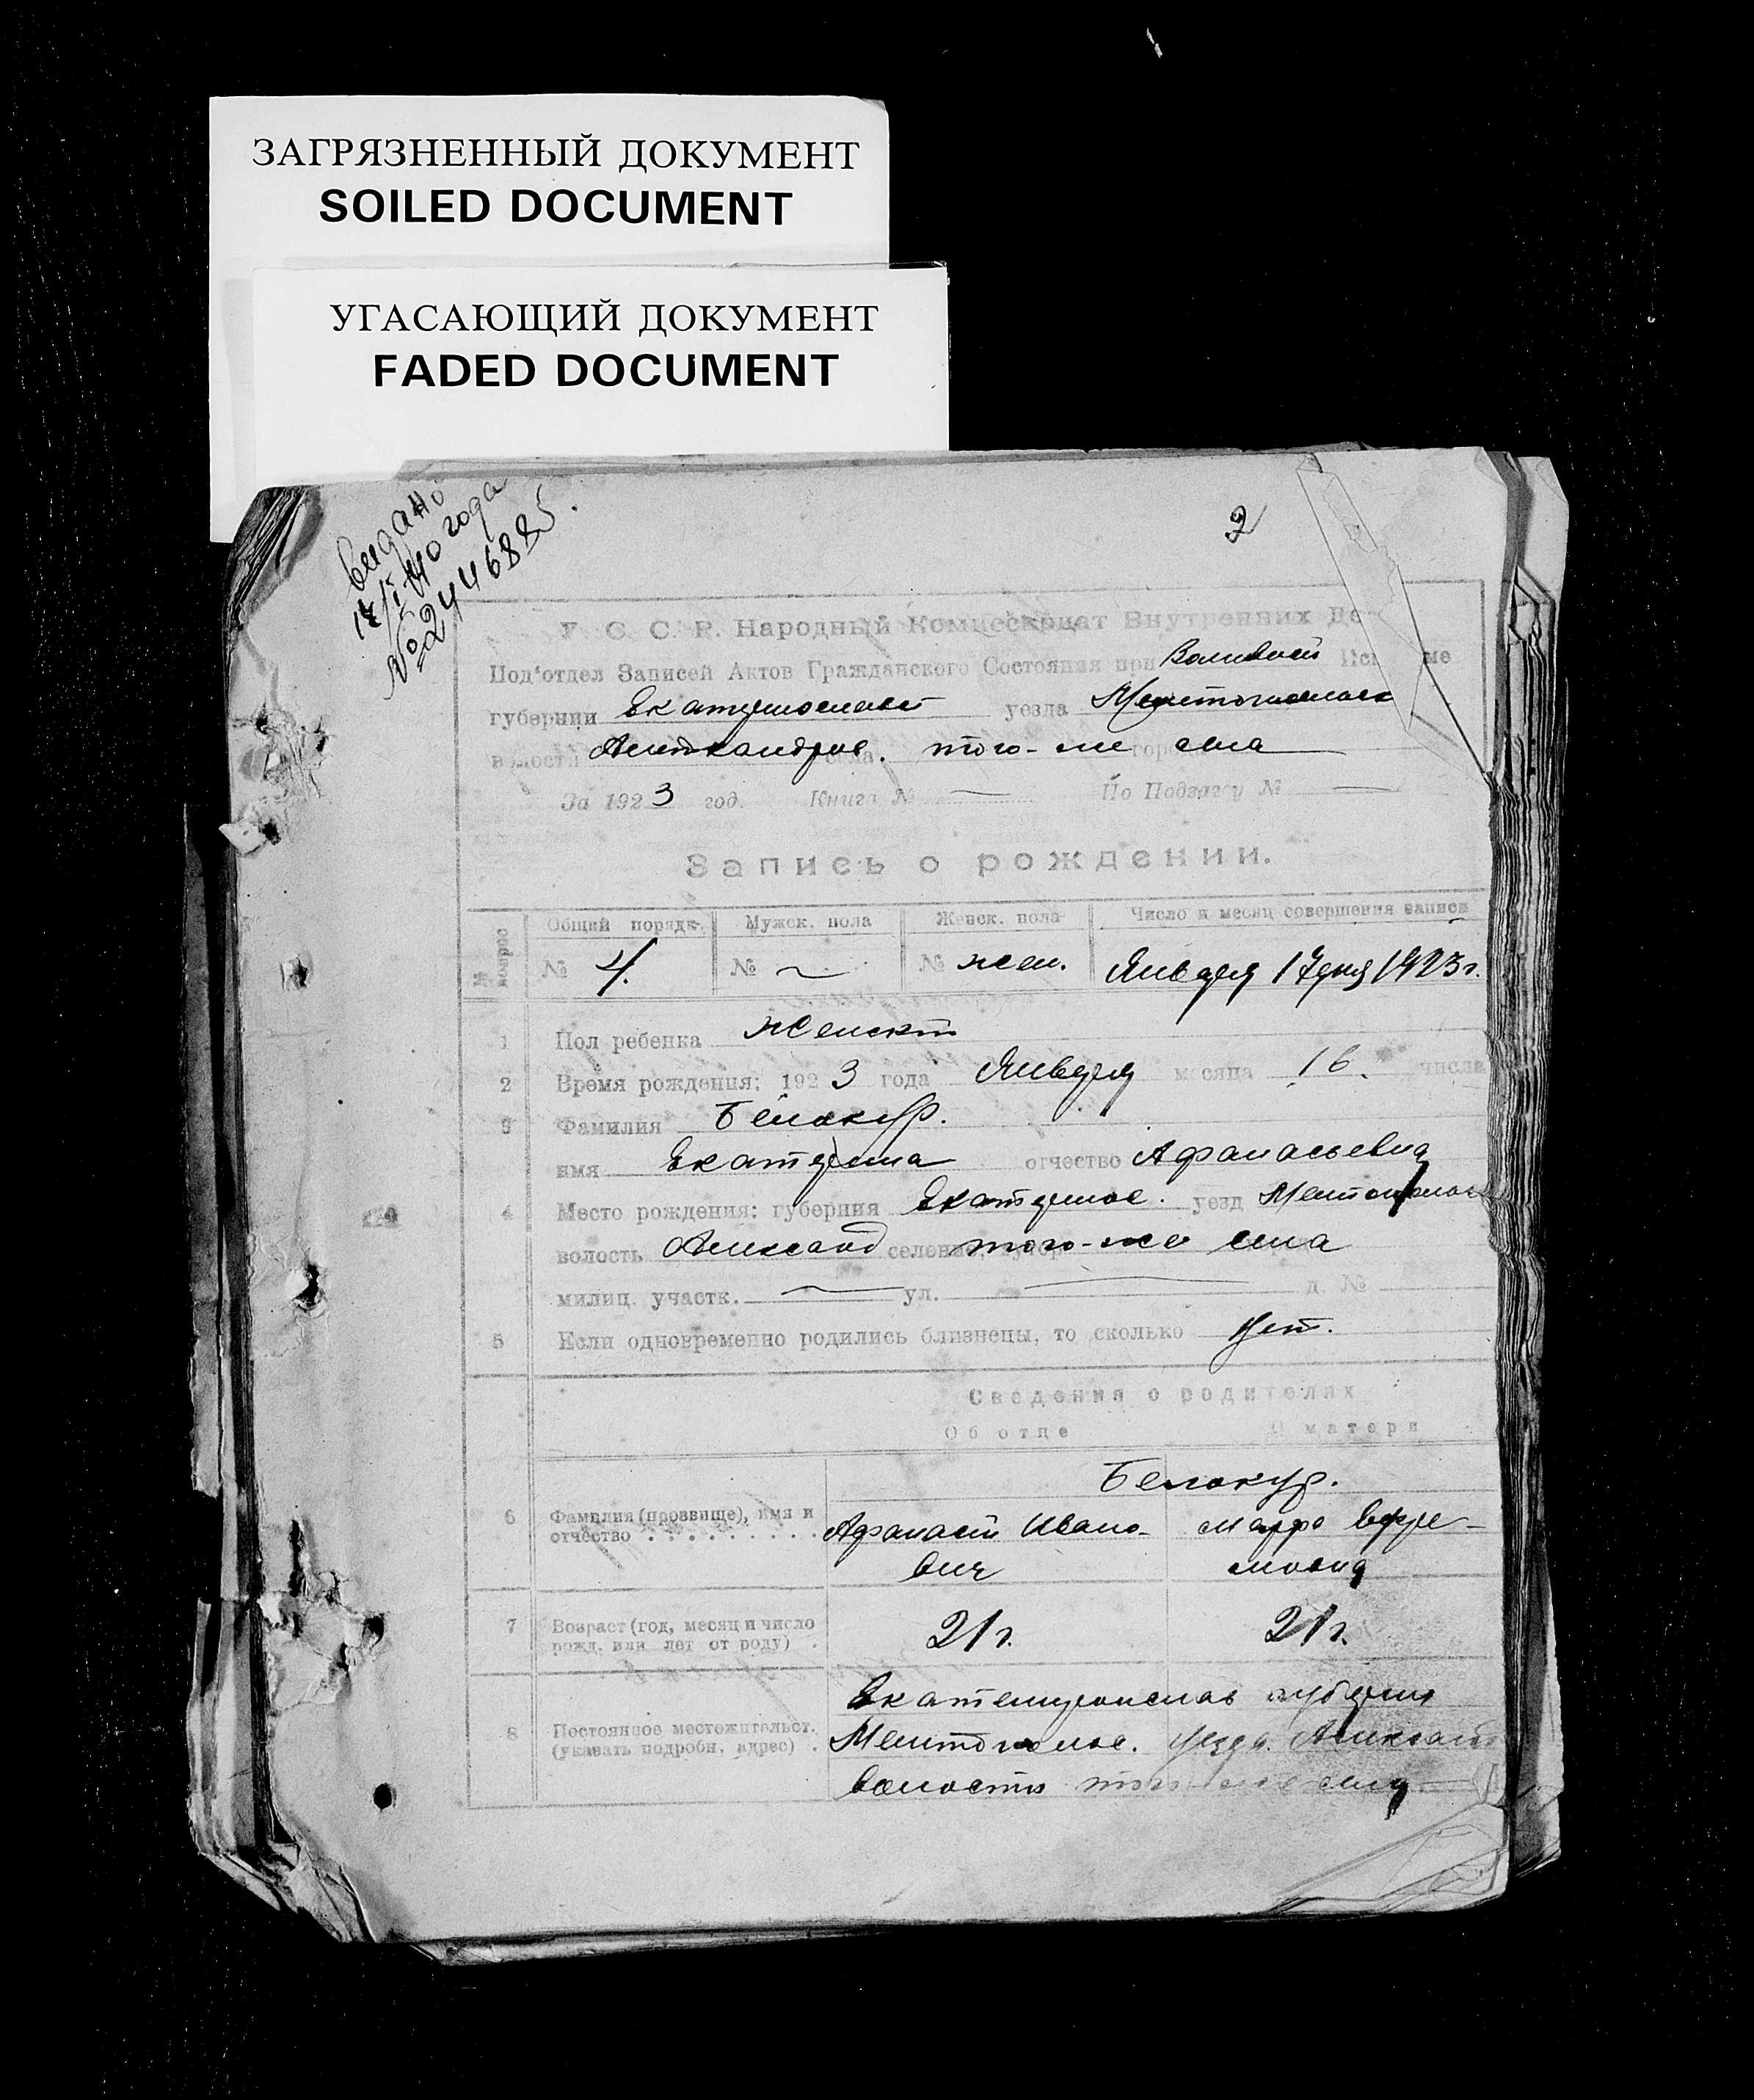 ЗАГРЯЗНЕННЫЙ ДОКУМЕНТ
SOILED DOCUMENT
УГАСАЮЩИЙ ДОКУМЕНТ
FADED DOCUMENT
выдано
года
№ 2446885.
2
У. С. С. Р. Народный Комиссариат Внутренних Де
Под'отдел Записей Актов Гражданского Состояния при
губернии Екатеринослав уезда Мелитопольск
волости Александров. села того-же села
За 1923 год. Книга № — По Подзагсу № —
Запись о рождении.
№ вопрос Общий порядк. Мужск. пола Женск. пола Число и месяц совершения записи
№ 4. № ~ № жен. Января 17 дня 1923 г.
1 Пол ребенка женский
2 Время рождения: 1923 года Января месяца 16. числа
3 Фамилия Белокур.
имя Екатерина отчество Афанасьевна
4 Место рождения: губерния Екатеринос. уезд Мелитополь
волость Александ селение, того-же села
милиц. участк. — ул. — д. №
5 Если одновременно родились близнецы, то сколько нет.
Сведения о родителях
Об отце О матери
Белокур.
6 Фамилия (прозвище), имя и отчество . . . . . . . . Афанасий Ивано- Марфа Ефре-
вич мовна
7 Возраст (год, месяц и число 21 г. 21 г.
рожд. или лет от роду) .
Екатеринослав губерния
8 Постоянное местожительст. Мелитополь. уезда. Александ
(указать подробн. адрес) . волости того-же села